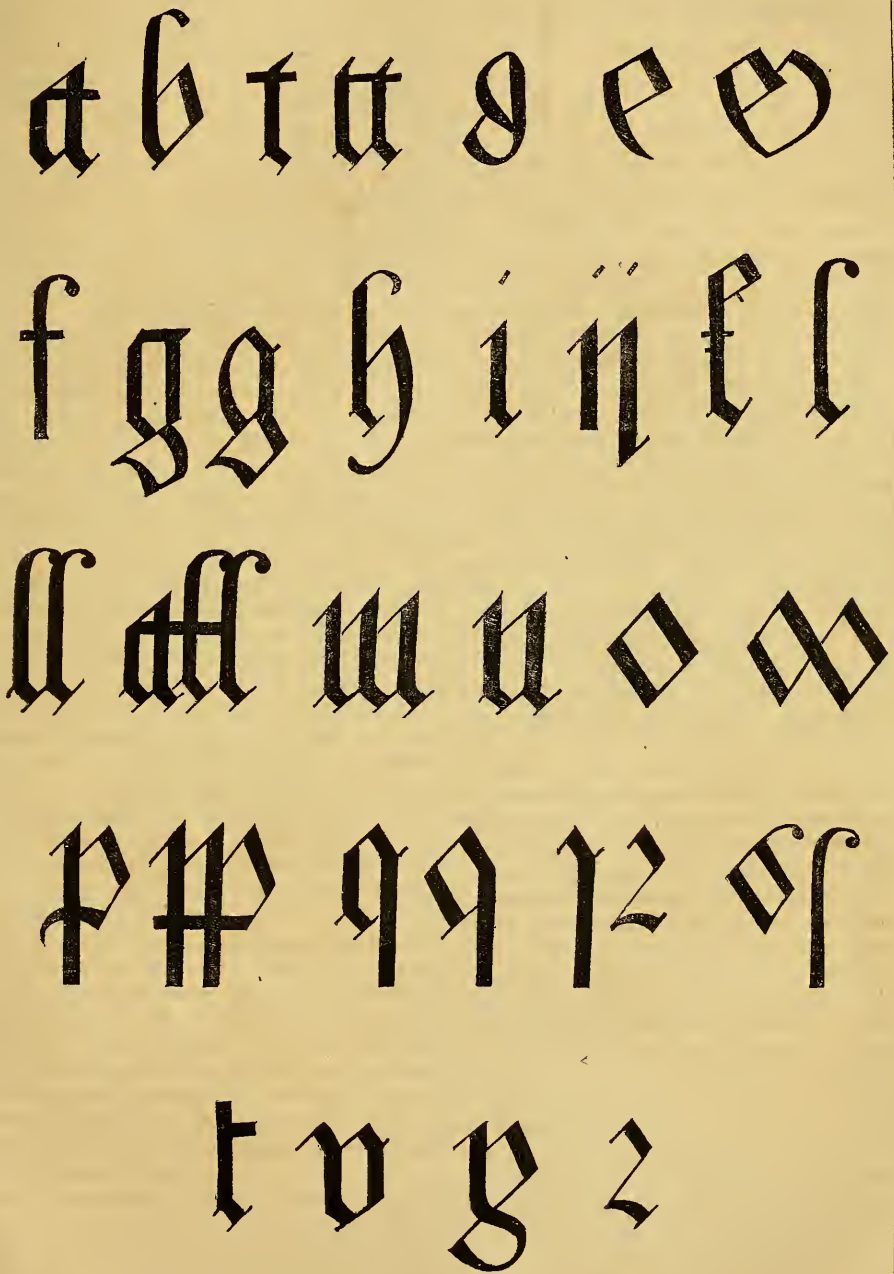 a b c cc d e eo
f g g h i ij k l
ll m n o oo
p pp q q r ꝛ s ſ
t v z